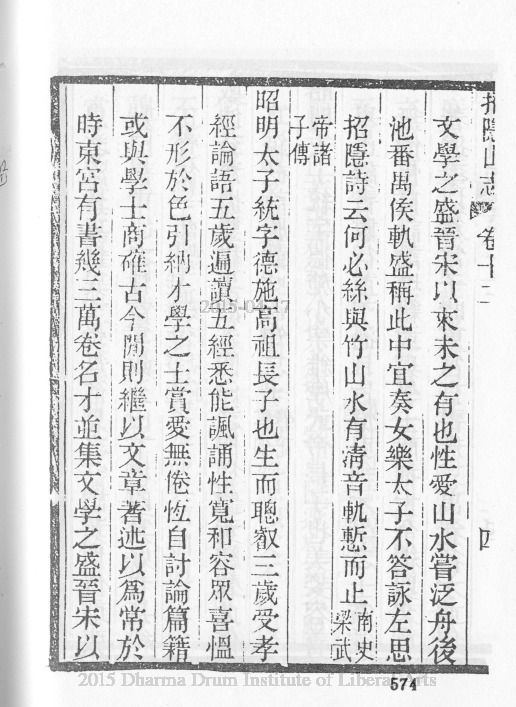 招隱山志 卷十二
四
文學之盛晉宋以來未之有也性愛山水嘗泛舟後
池番禺侯軌盛稱此中宜奏女樂太子不答詠左思
招隱詩云何必絲與竹山水有清音軌慙而止南史梁武
帝諸子傳
昭明太子統字德施高祖長子也生而聰叡三歲受孝
經論語五歲遍讀五經悉能諷誦性寬和容眾喜慍
不形於色引納才學之士賞愛無倦恆自討論篇籍
或與學士商確古今閒則繼以文章著述以爲常於
時東宮有書幾三萬卷名才並集文學之盛晉宋以
2015 Dharma Drum Institute of Liberal Arts
574